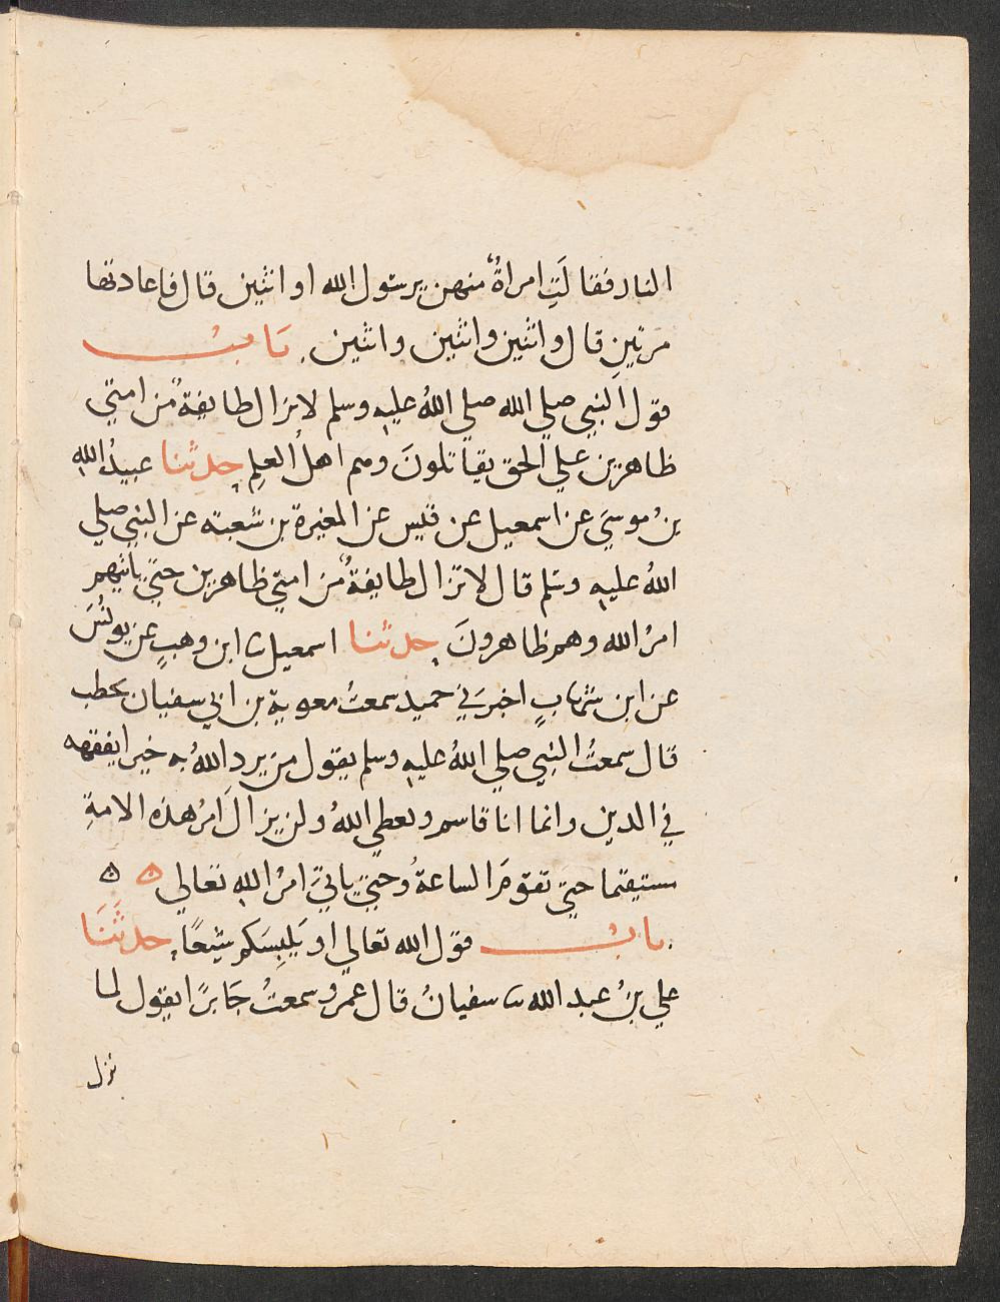 النار فقالَتِ امراةٌ منهن يرسول الله او اثنين قال فاعادتها
مرتينِ قال واثنين واثنين واثنين بَابُ
قول النبي صلي الله صلي اللهُ عليه وسلم لا يزال طايفةٌ من امتي
ظاهرين علي الحق يقاتلونَ وهم اهلُ العلِم حدثنا عبيدُ اللهِ
بنُ موسيَ عن اسمعيل عن قيس عن المغيرة بن شعبته عن النبي صلي
اللهُ عليه وسلم قال لا تزال طايفةٌ من امتي ظاهرين حتي ياتيهم
امرُ الله وهم ظاهرونَ حدثنا اسمعيل ثنا ابن وهبٍ عن يونُسَ
عن ابن شهابٍ اخبرَني حميد سمعتُ معوية بن ابي سفيان يخطب
قال سمعتُ النبي صلي اللهُ عليه وسلم يقول من يرد اللهُ به خيرا يفقهه
في الدين وانما انا قاسم ويعطي اللهُ ولن يزالَ امرُ هذه الامةِ
مستيقتما حتي تقومَ الساعةُ وحتي ياتيَ امرُ الله تعالي ه ه
بابُ قول الله تعالي او يَلبِسَكم شيعًا حدثَنَا
علي بنُ عبد الله ثنا سفيانُ قال عمرو سمعتُ جَابرًا يقول لما
نزل